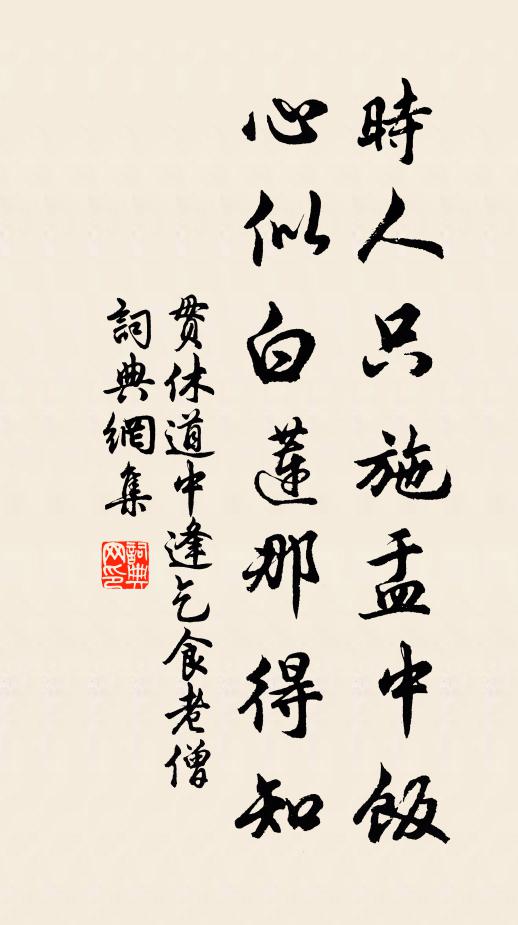 時人只施盂中飯
心似白蓮那得知
貫休道中逢乞食老僧
詞典網集
詞典网印